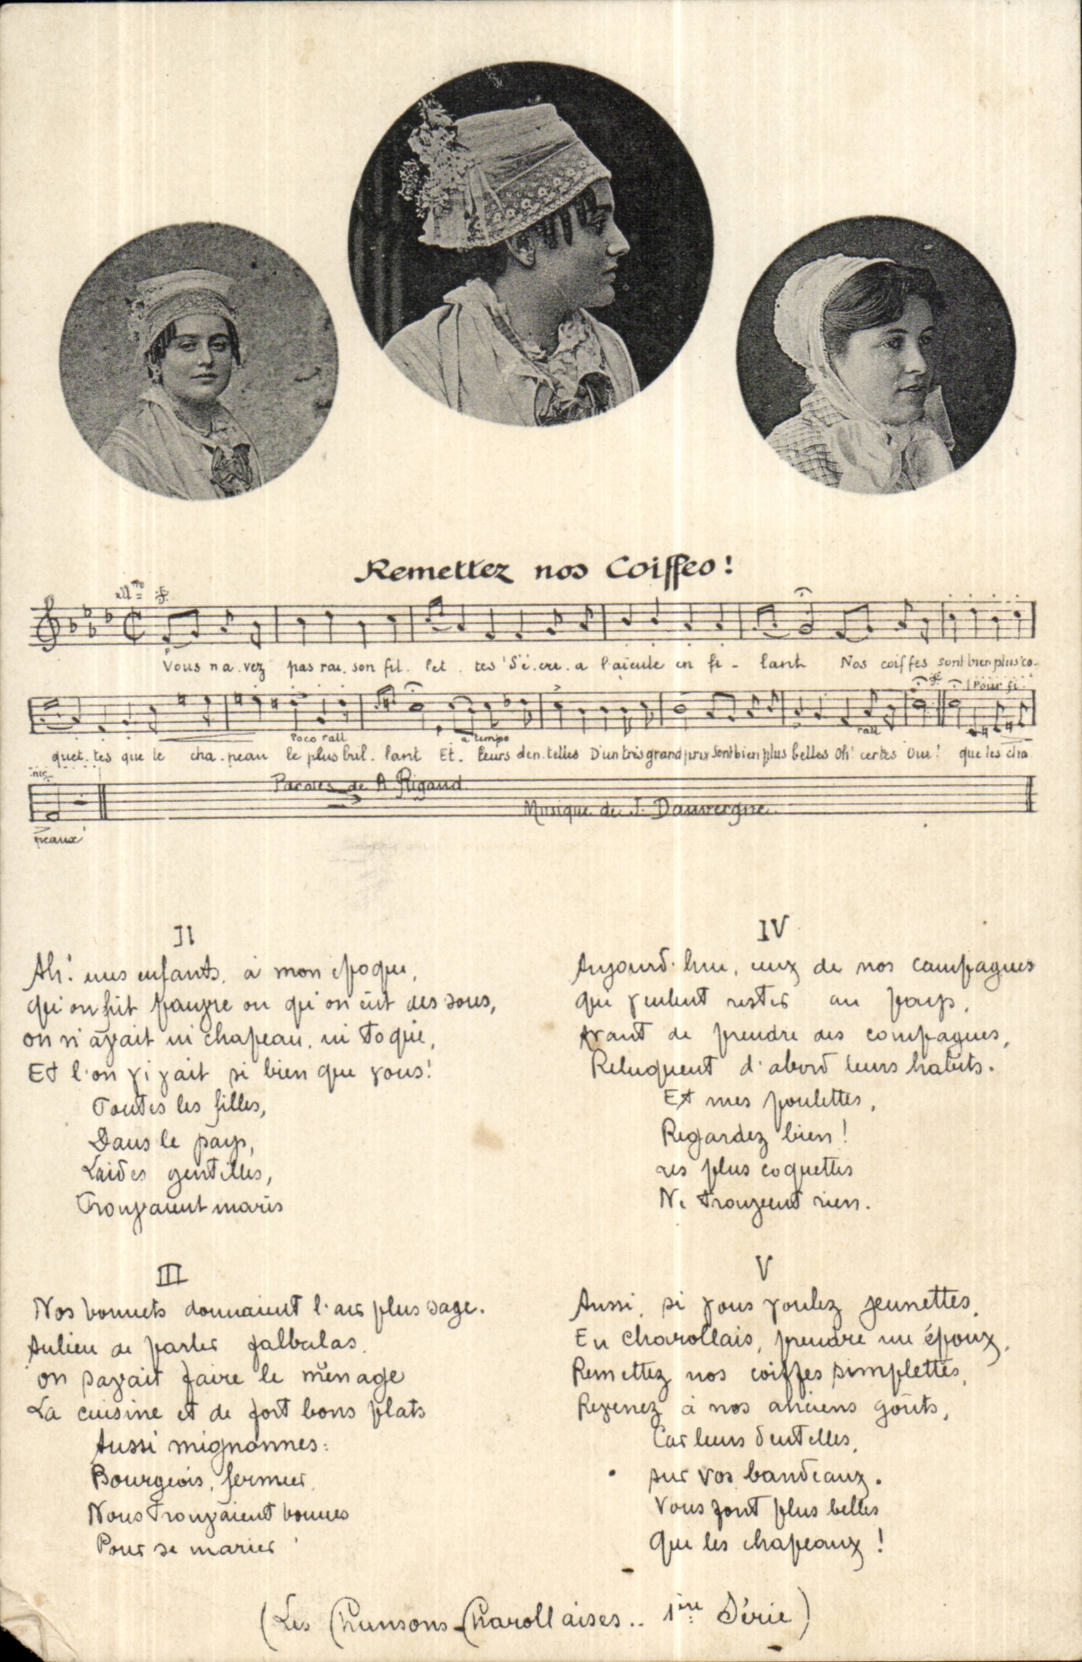 Remettez nos Coiffes !
all.^tto
Vous n'a.vez pas rai.son fil.let.tes S'é.cri.a l'aïeule en fi-lant Nos coiffes sont bien plus co-
poco rall a tempo rall 1 Pour fi-
quet.tes que le cha.peau le plus bril.lant Et leurs den.telles D'un très grand prix Sont bien plus belles Oh! certes Oui! que les cha
nir
Paroles de A. Rigaud
Musique de J. Dauvergne
peaux!
II
Ah! mes enfants, à mon époque,
qu'on fût pauvre ou qu'on eût des sous,
on n'avait ni chapeau, ni toque,
Et l'on vivait si bien que vous!
Toutes les filles,
Dans le pays,
Laides gentilles,
Trouvaient maris
III
Nos bonnets donnaient l'air plus sage.
Aulieu de parler falbalas.
on savait faire le ménage
La cuisine et de fort bons plats
Aussi mignonnes:
Bourgeois, fermier,
Nous trouvaient bonnes
Pour se marier !
IV
Aujourd'hui, ceux de nos campagnes
qui veulent rester au pays,
Avant de prendre des compagnes,
Reluquent d'abord leurs habits.
Et mes poulettes,
Regardez bien !
Les plus coquettes
Ne trouvent rien.
V
Aussi, si vous voulez jeunettes,
En Charollais, prendre un époux,
Remettez nos coiffes simplettes,
Revenez à nos anciens goûts,
Car leurs dentelles,
sur vos bandeaux.
Vous font plus belles
Que les chapeaux !
(Les Chansons Charollaises.. 1ère Série)